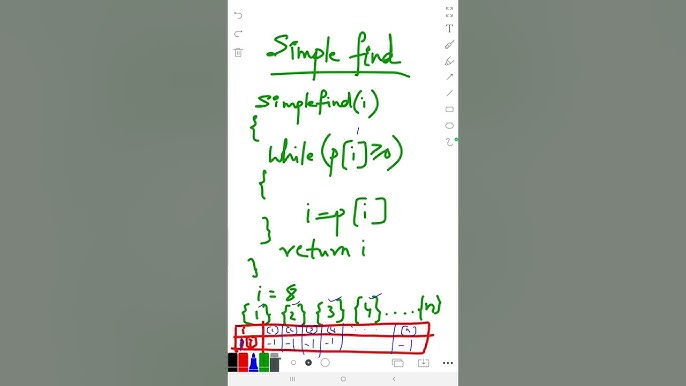 Simple find
Simplefind(i)
{
while(p[i]≥0)
{
i=p[i]
}
return i
}
i = 8
{1} {2} {3} {4} ..... {n}
i (1) (2) (3) (4 . . . (n)
-1 -1 -1 -1 -1